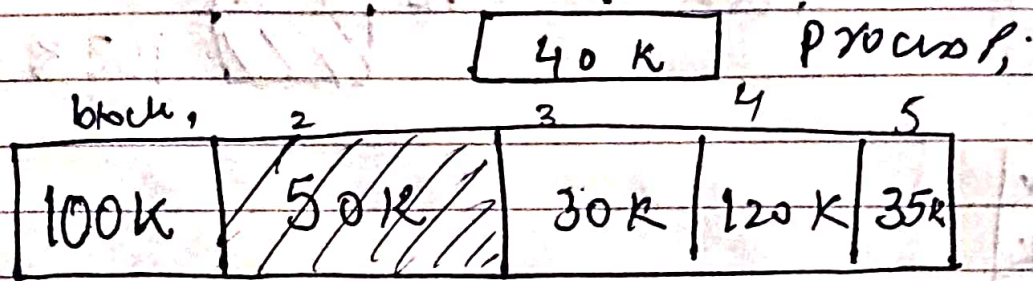 40 K Process P₁
block 1 2 3 4 5
100K 50K 30K 120K 35K